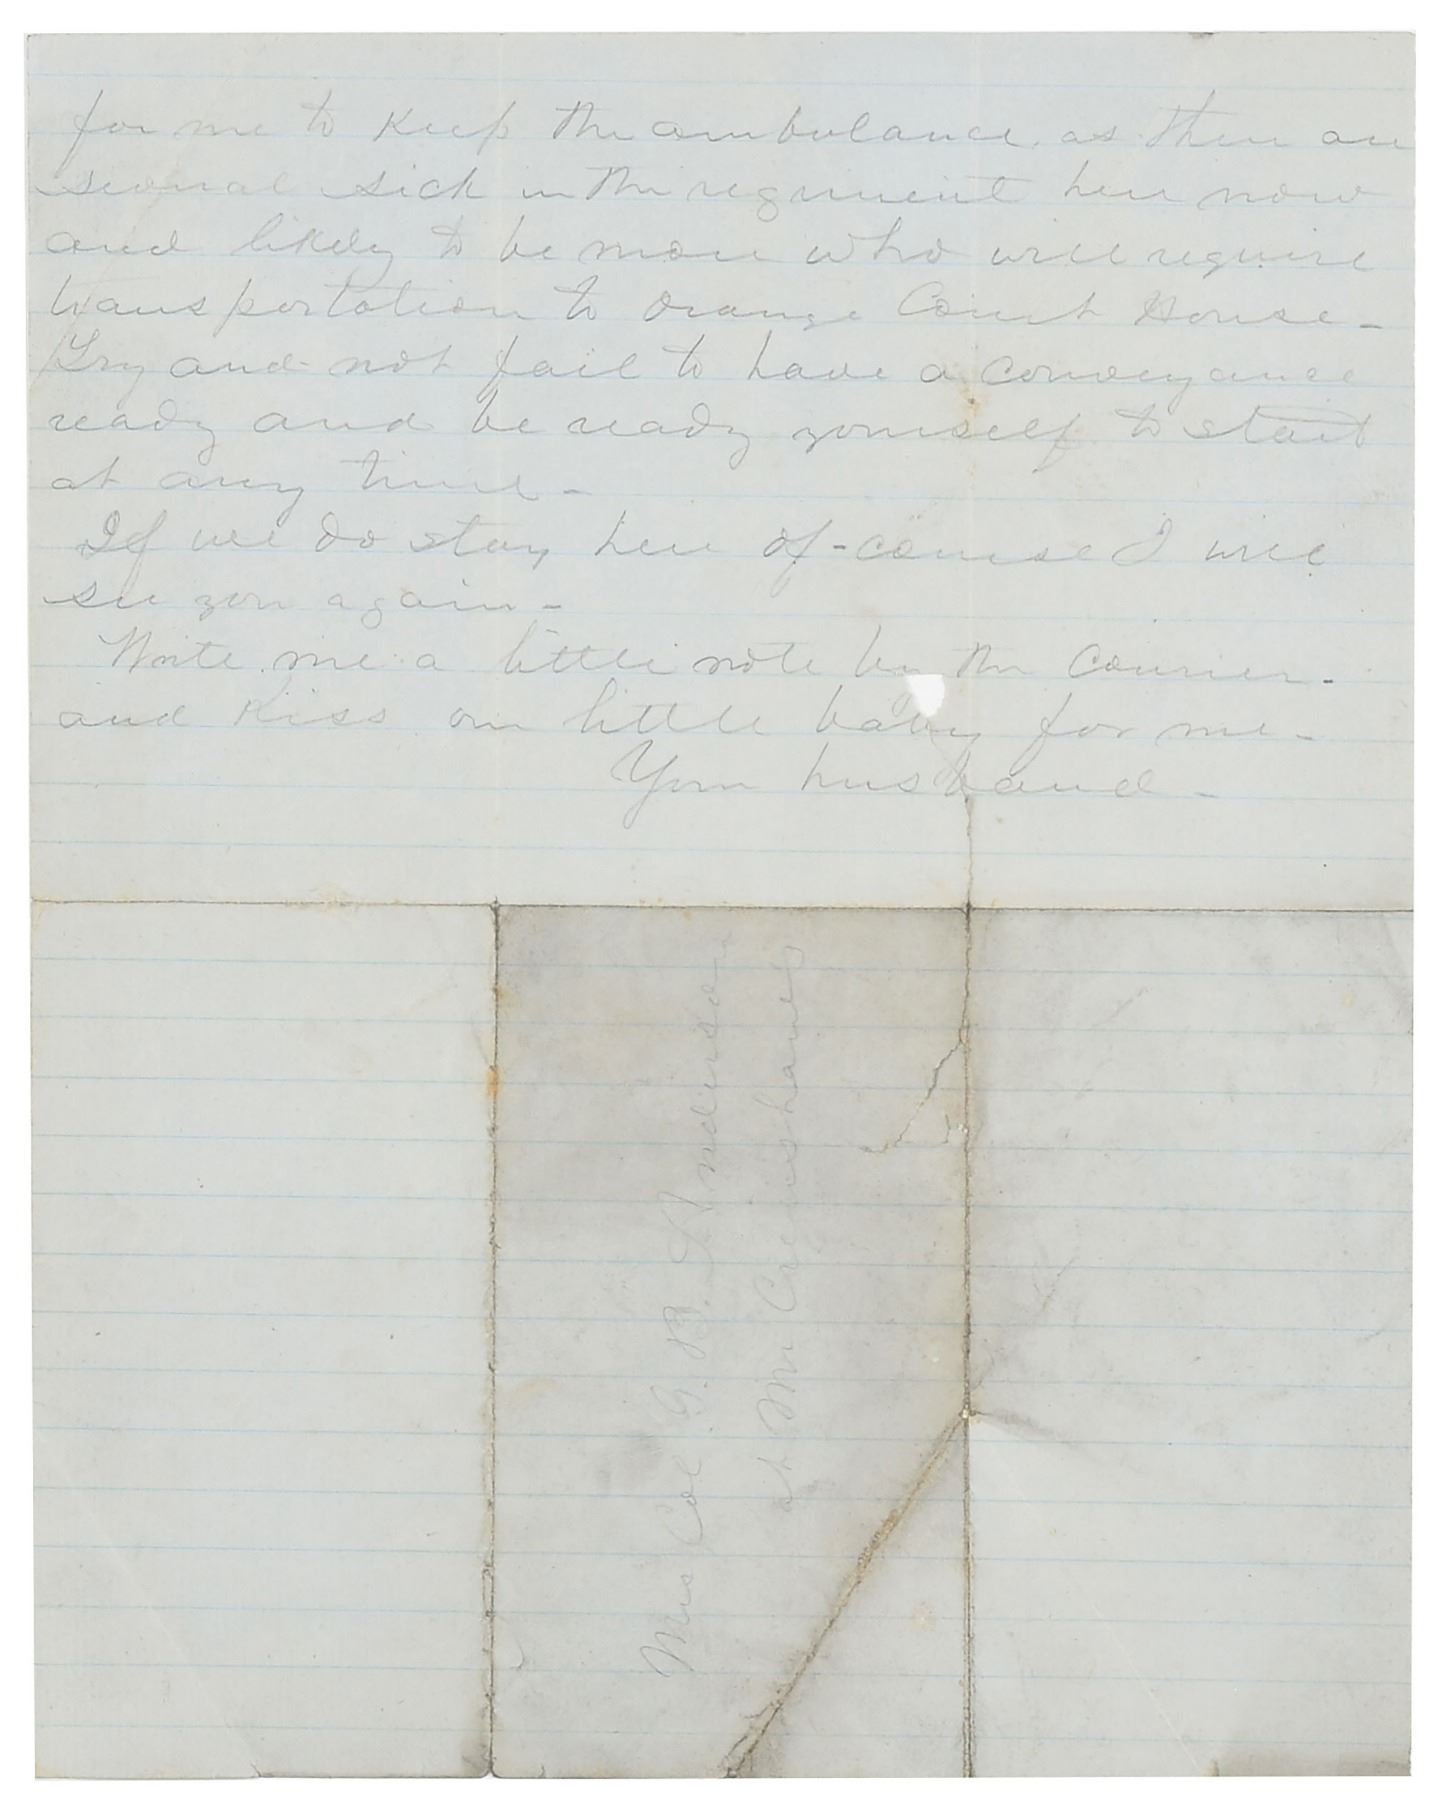 for me to keep the ambulance, as there are
several sick in the regiment here now
and likely to be more who will require
transportation to Orange Court House -
Try and not fail to have a conveyance
ready and be ready yourself to start
at any time -
If we do stay here of-course I will
see you again -
Write me a little note by the Courier -
and kiss our little baby for me -
Your husband -
Mrs Col. G. B. Anderson
at Mr Crenshaws